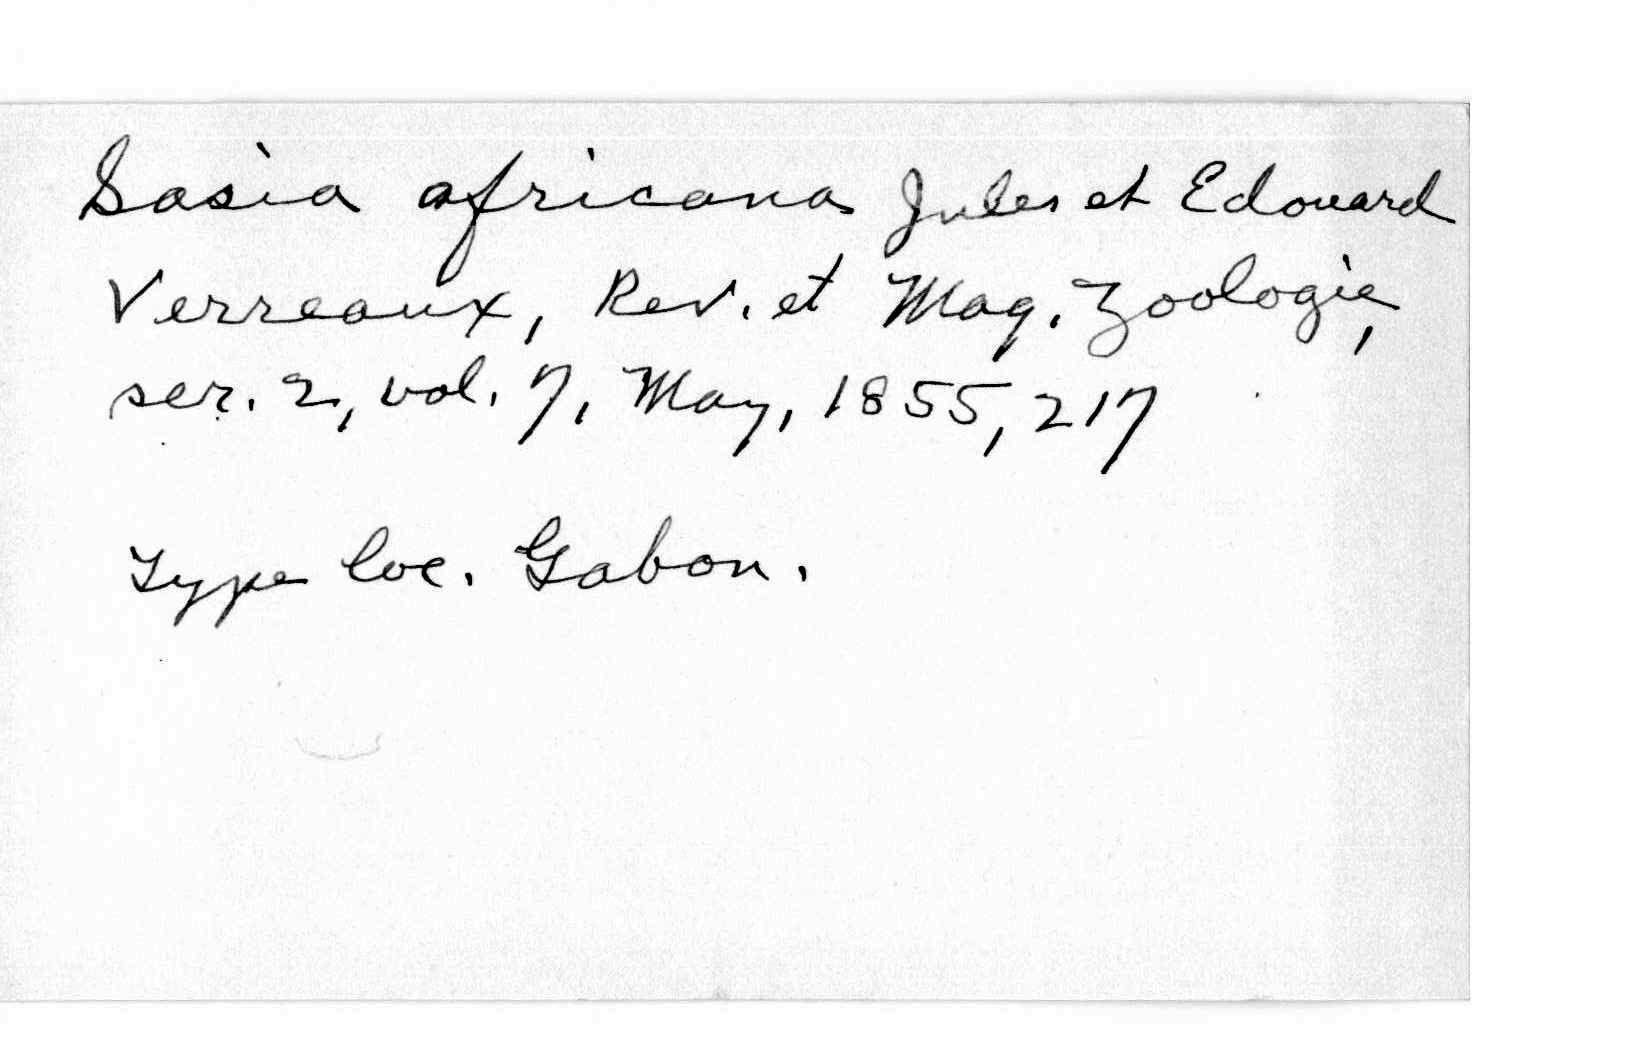 Sasia africana Jules et Edouard
Verreaux, Rev. et Mag. Zoologie,
ser. 2, vol. 7, May, 1855, 217
Type loc. Gabon.